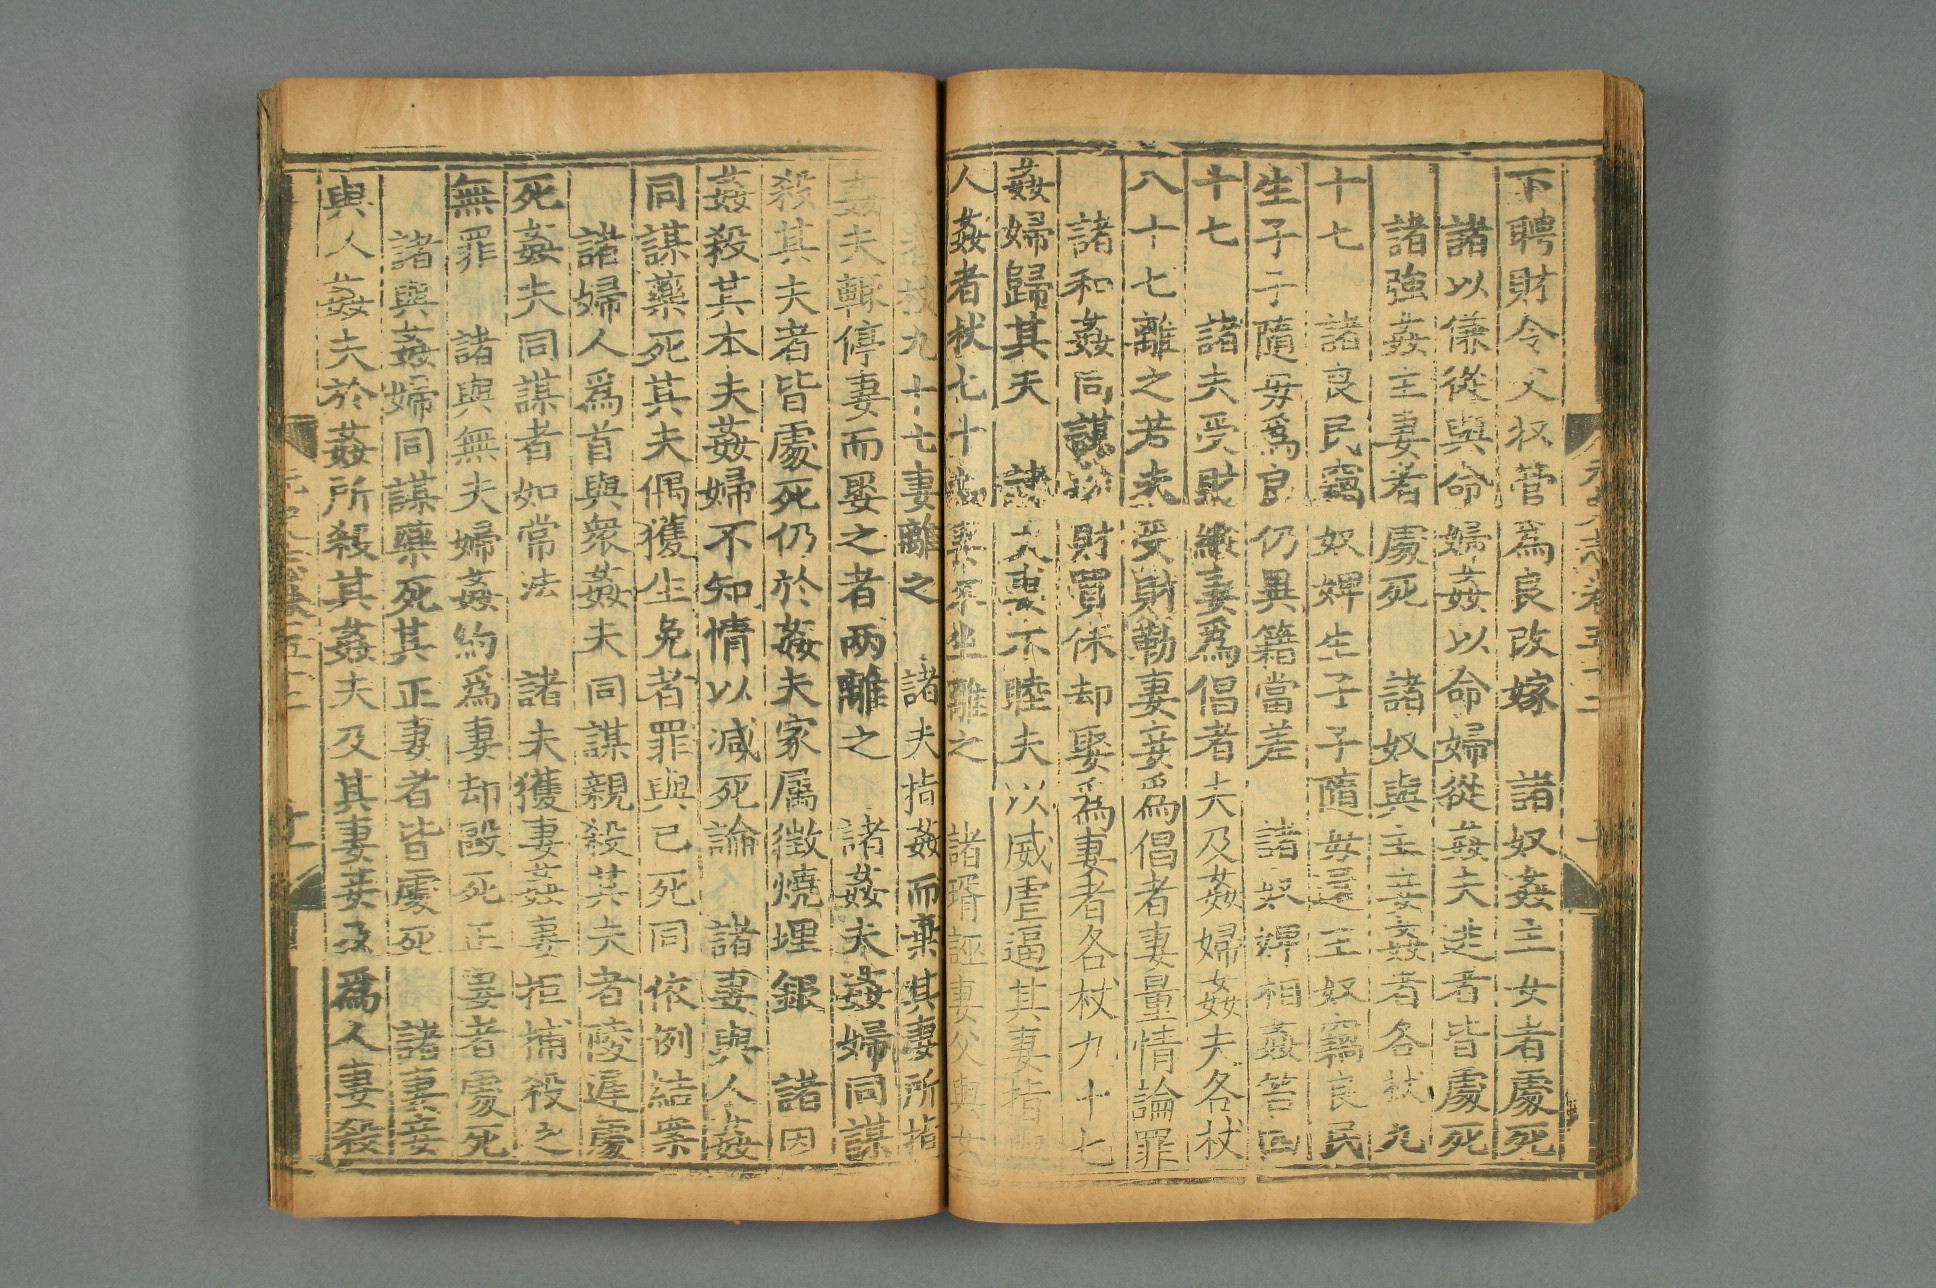 下聘財令父收管爲良改嫁　諸奴姦主女者處死
諸以傔從與命婦姦以命婦從姦夫逃者皆處死
諸強姦主妻者處死　諸奴與主妾姦者各杖九
十七　諸良民竊奴婢生子子隨毋還主奴竊良民
生子子隨毋爲良仍異籍當差　諸奴婢相姦笞四
十七　諸夫受財縱妻爲倡者夫及姦婦姦夫各杖
八十七離之若夫受財勒妻妾爲倡者妻量情論罪
諸和姦同謀以財買休却娶爲妻者各杖九十七
姦婦歸其夫　諸夫妻不睦夫以威虐逼其妻指與
人姦者杖七十七妻不坐離之　諸壻誣妻父與女
姦者杖九十七妻離之　諸夫指姦而棄其妻所指
姦夫輙停妻而娶之者兩離之　諸姦夫姦婦同謀
殺其夫者皆處死仍於姦夫家属徵燒埋銀　諸因
姦殺其本夫姦婦不知情以减死論　諸妻與人姦
同謀藥死其夫偶獲生免者罪與已死同依例結案
諸婦人爲首與衆姦夫同謀親殺其夫者陵遲處
死姦夫同謀者如常法　諸夫獲妻姦妻拒捕殺之
無罪　諸與無夫婦姦約爲妻却毆死正妻者處死
諸與姦婦同謀藥死其正妻者皆處死　諸妻妾
與人姦夫於姦所殺其姦夫及其妻妾及爲人妻殺